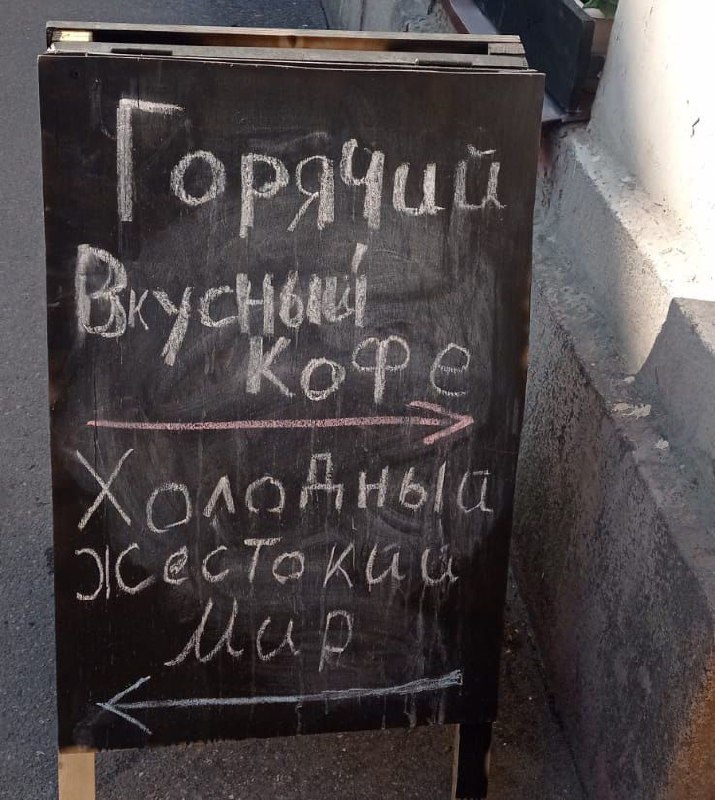 Горячий
Вкусный
кофе
Холодный
жестокий
мир